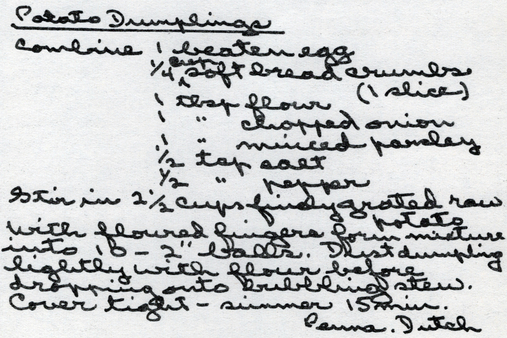 Potato Dumplings
Combine 1 beaten egg
1/4 cup soft bread crumbs
(1 slice)
1 tbsp flour
1 " chopped onion
1 " minced parsley
1/2 tsp salt
1/2 " pepper
Stir in 2 1/2 cups finely grated raw
potato
With floured fingers form mixture
into 10 - 2" balls. Dust dumpling
lightly with flour before
dropping onto bubbling stew.
Cover tight - simmer 15 min.
Penna. Dutch